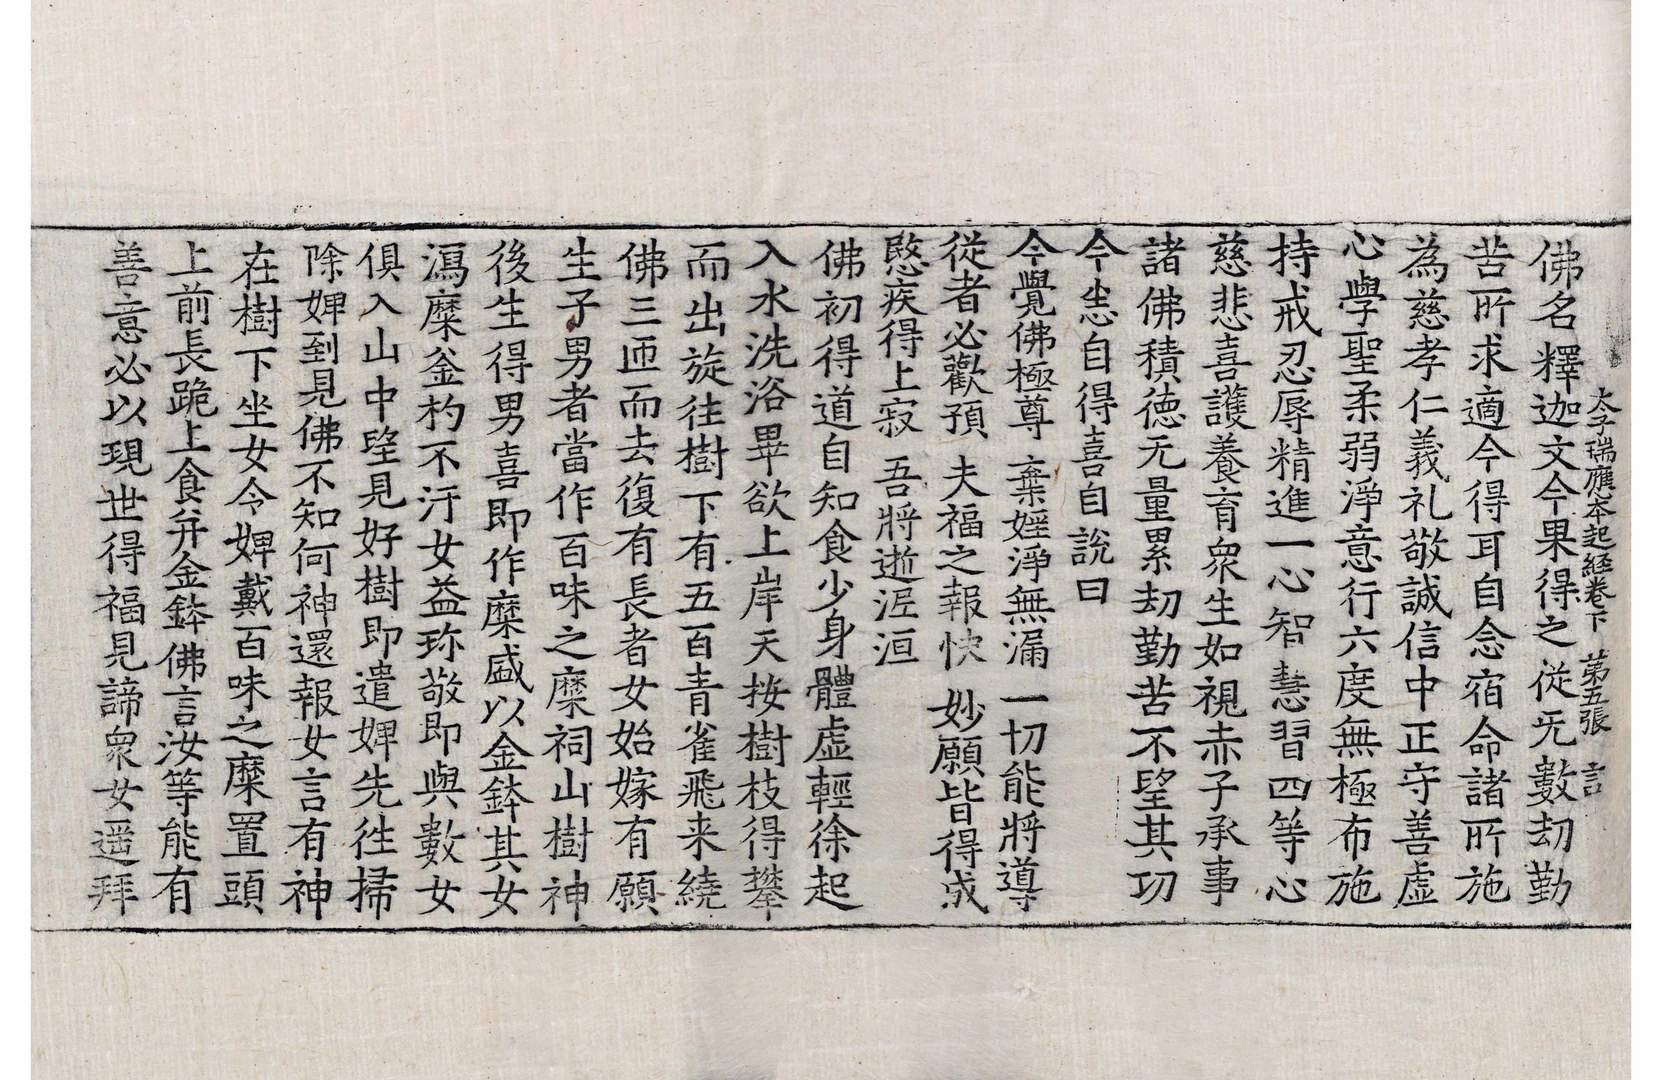 太子瑞應夲起經卷下　第五張　言
佛名釋迦文今果得之從无數劫勤
苦所求適今得耳自念宿命諸所施
為慈孝仁義礼敬誠信中正守善虛
心學聖柔弱淨意行六度無極布施
持戒忍辱精進一心智慧習四等心
慈悲喜護養育衆生如視赤子承事
諸佛積德无量累劫勤苦不望其功
今悉自得喜自說曰
今覺佛極尊　棄婬淨無漏　一切能將導
從者必歡預　夫福之報快　妙願皆得成
愍疾得上寂　吾將逝泥洹
佛初得道自知食少身體虛輕徐起
入水洗浴畢欲上岸天按樹枝得攀
而出旋往樹下有五百青雀飛来繞
佛三匝而去復有長者女始嫁有願
生子男者當作百味之糜祠山樹神
後生得男喜即作糜盛以金鉢其女
瀉糜釜杓不汙女益珎敬即與數女
俱入山中望見好樹即遣婢先往掃
除婢到見佛不知何神還報女言有神
在樹下坐女令婢戴百味之糜置頭
上前長跪上食并金鉢佛言汝等能有
善意必以現世得福見諦衆女遥拜